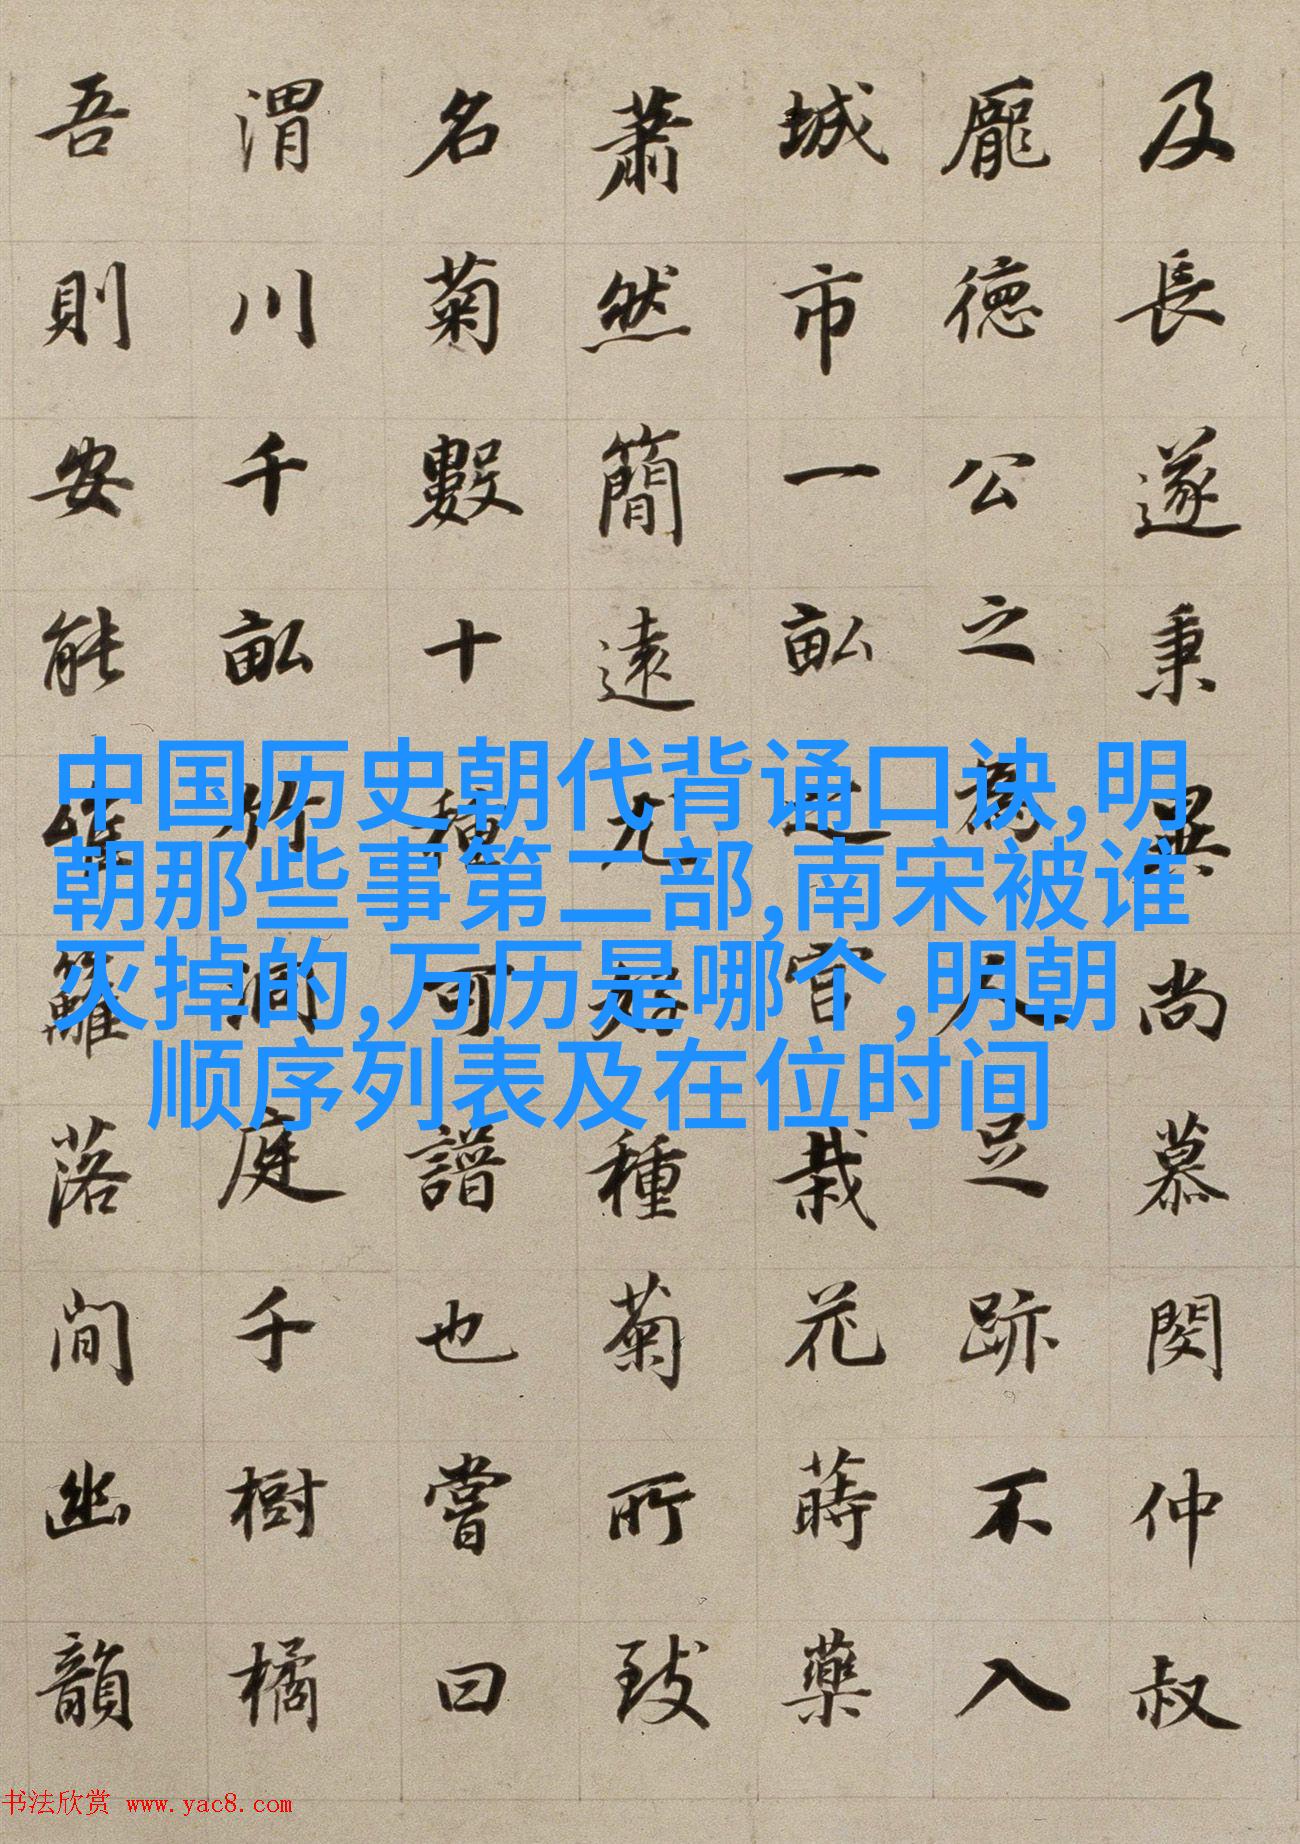 及長遂秉異尚慕閔仲叔
龐徳公之為人足跡不入
城市一畝之宮栽花蒔藥
蕭然簡遠尤種菊所致
名菊數十種可譜也嘗曰
渭川千畝竹洞庭千樹橘
吾則安能籬落間幽韻
中国历史朝代背诵口诀,明
朝那些事第二部,南宋被谁
灭掉的,万历是哪个,明朝
顺序列表及在位时间
书法欣赏 www.yac8.com